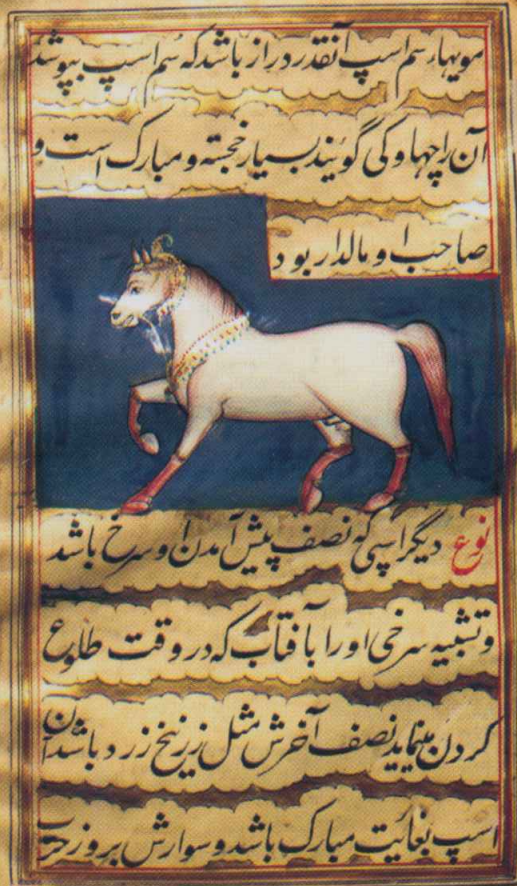 مویهاء سم اسپ آنقدر دراز باشد که سم اسپ بپوشد
آن را چهاوکی گویند بسیار خجسته و مبارک است و
صاحب او مالدار بود
نوع دیگر اسپی که نصف پیش آمدن او سرخ باشد
و تشبیه سرخی او را بآفتاب که در وقت طلوع
کردن مینماید نصف آخرش مثل زرنیخ زرد باشد آن
اسپ بغائیت مبارک باشد و سوارش بروز حرب